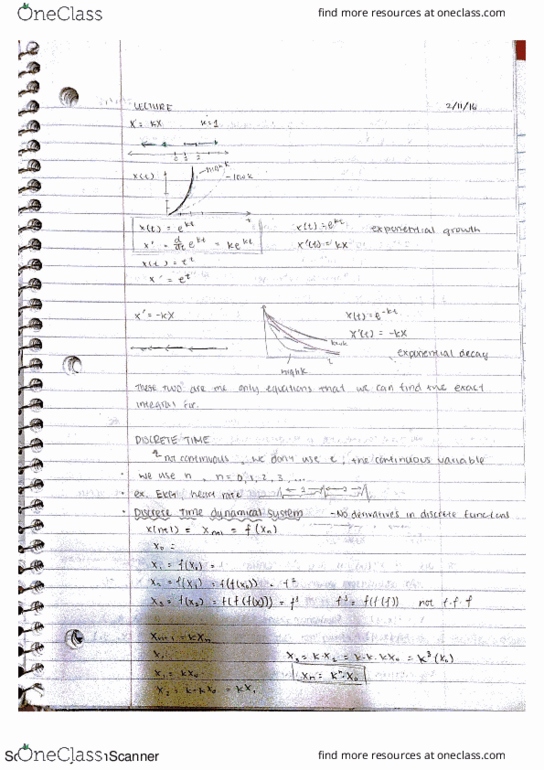 OneClass find more resources at oneclass.com
LECTURE 2/11/16
X' = kX k=1
X(t) high k
low k
t
x(t) = e^kt x(t) = e^kt exponential growth
x' = d/dt e^kt = ke^kt x'(t) = kx
x(t) = e^t
x' = e^t
x' = -kx x(t) = e^-kt
x'(t) = -kx
low k
high k
exponential decay
These two are the only equations that we can find the exact
integral for.
DISCRETE TIME
not continuous, we don't use t, the continuous variable
· we use n, n = 0, 1, 2, 3 ...
· ex. EKG, heart rate
· Discrete Time dynamical system - No derivatives in discrete functions
x(n+1) = x_n+1 = f(x_n)
x_0 =
x_1 = f(x_0) =
x_2 = f(x_1) = f(f(x_0)) = f^2
x_3 = f(x_2) = f(f(f(x))) = f^3 f^3 = f(f(f)) not f·f·f
x_n+1 = kx_n
x_1 x_3 = k·x_2 = k·k·kx_0 = k^3(x_0)
x_1 = kx_0 x_n = k^n·x_0
x_2 = k·kx_0 = kx_1
OneClass Scanner find more resources at oneclass.com